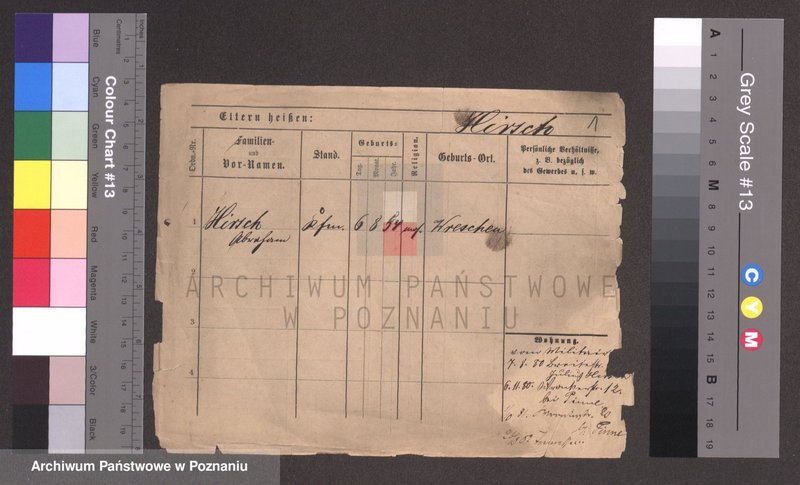 Eltern heißen:
Hirsch
1
Ordn.-Nr.
Familien-
und
Vor-Namen.
Stand.
Geburts-
Tag.
Monat.
Jahr.
Religion.
Geburts-Ort.
Persönliche Verhältnisse,
z. B. bezüglich
des Gewerbes u. s. w.
1
Hirsch
Abraham
Kfm.
6
8
54
mos.
Wreschen
2
ARCHIWUM PAŃSTWOWE
W POZNANIU
3
Wohnung.
vom Militair
7. 1. 80 Breitestr.
4
6. 11. 80.
bei Pinne
20
bei Pinne
Colour Chart #13
Blue
Cyan
Green
Yellow
Red
Magenta
White
3/Color
Black
Centimetres
Inches
Grey Scale #13
C
Y
M
A
1
2
3
4
5
6
M
8
9
10
11
12
13
14
15
B
17
18
19
Archiwum Państwowe w Poznaniu